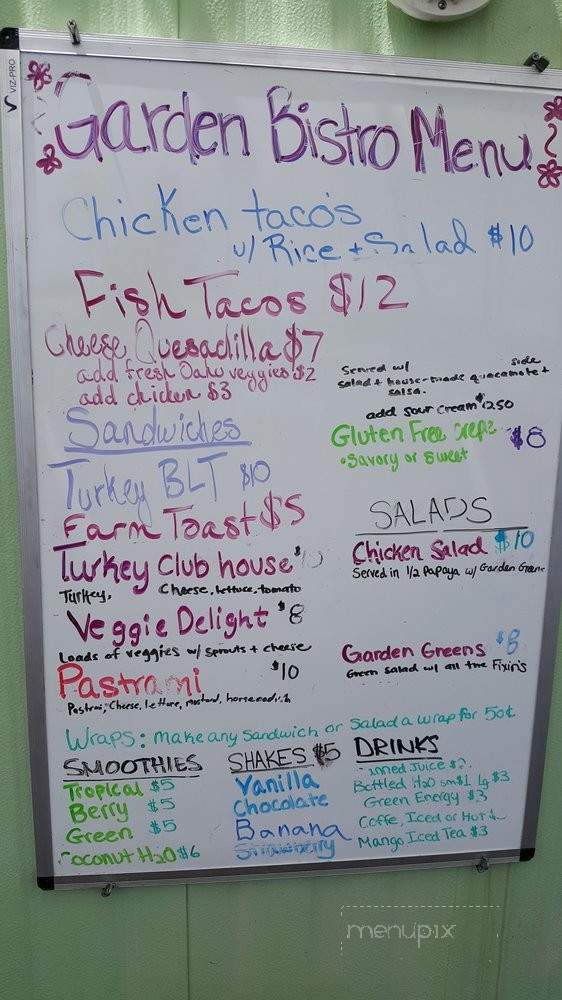 VIZ-PRO
Garden Bistro Menu
Chicken taco's
w/ Rice + Salad $10
Fish Tacos $12
Cheese Quesadilla $7
add fresh Oahu veggies $2
add chicken $3
Served w/ side
salad + house-made guacamole +
salsa.
add sour cream $1250
Gluten Free crepe $8
• Savory or sweet
Sandwiches
Turkey BLT $10
Farm Toast $5
Turkey Club house $10
Turkey, Cheese, lettuce, tomato
Veggie Delight $8
Loads of veggies w/ sprouts + cheese
Pastrami $10
Pastrami, Cheese, lettuce, mustard, horseradish
SALADS
Chicken Salad $10
Served in 1/2 Papaya w/ Garden Greens
Garden Greens $8
Green salad w/ all the Fixin's
Wraps: make any Sandwich or Salad a wrap for 50¢
SMOOTHIES
Tropical $5
Berry $5
Green $5
Coconut H2O $6
SHAKES $5
Vanilla
Chocolate
Banana
Strawberry
DRINKS
Juice
Bottled H2O sm $1 lg $3
Green Energy $3
Coffe, Iced or Hot
Mango Iced Tea $3
menupix